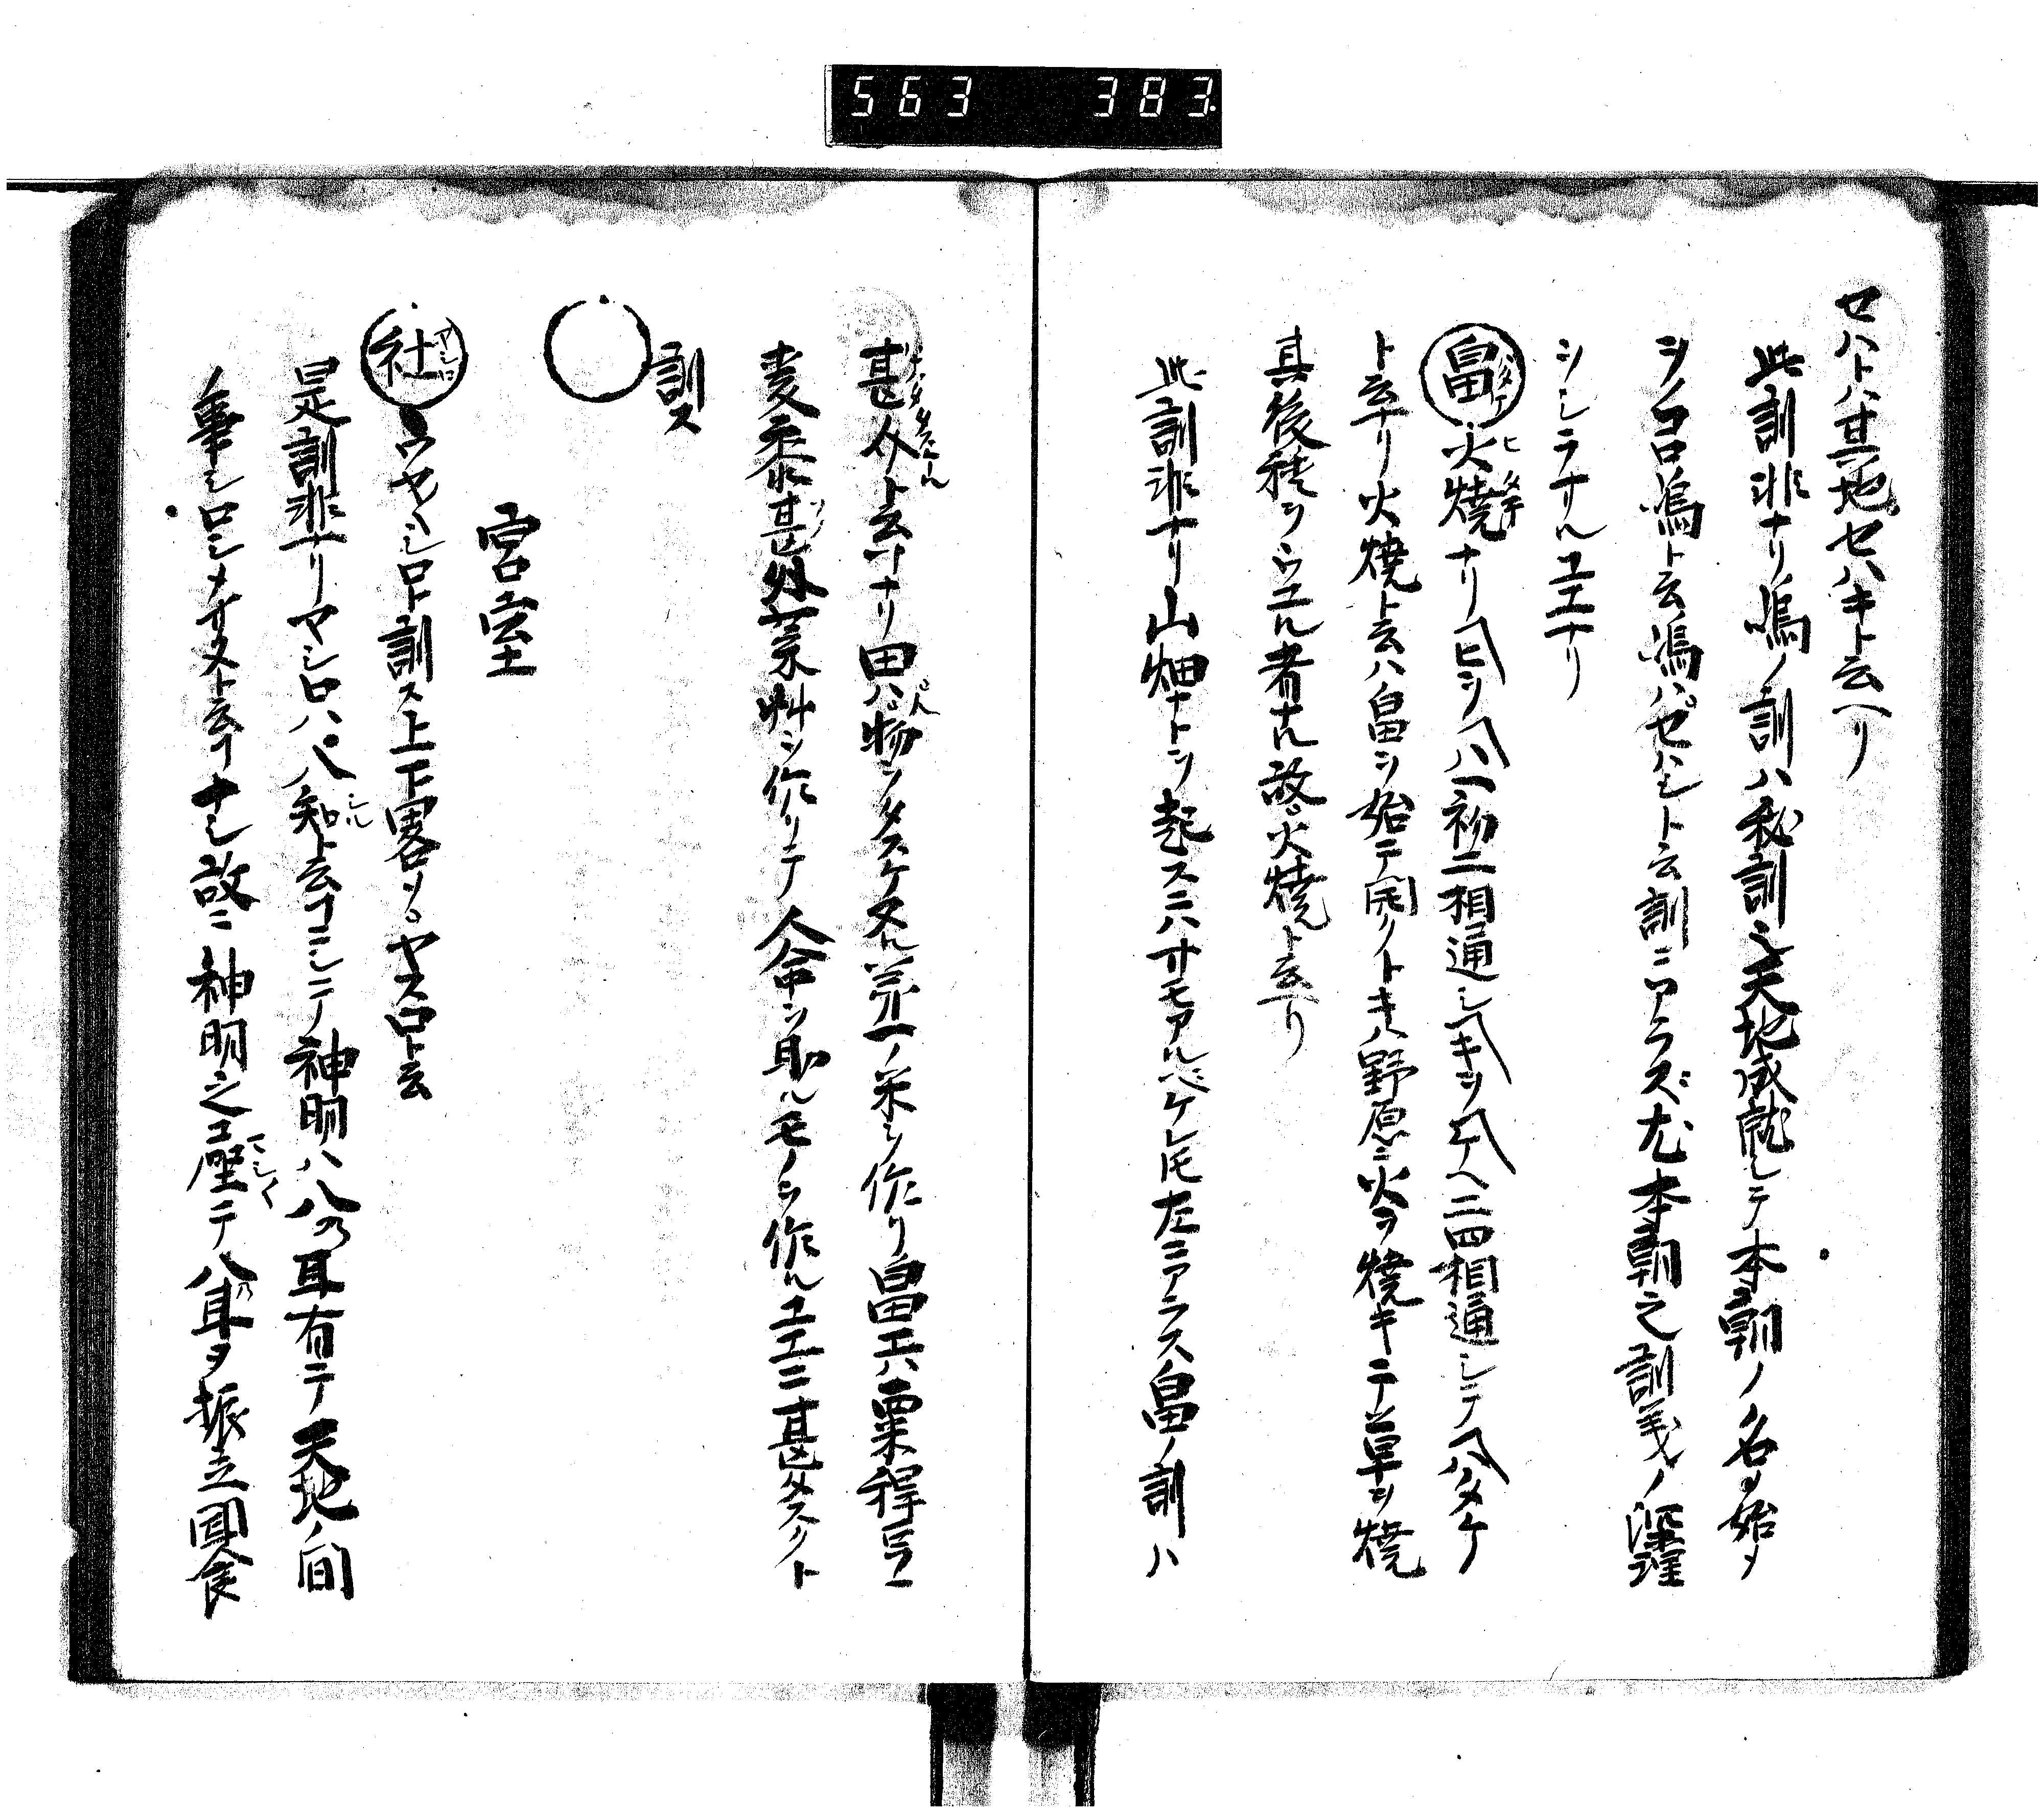 563 383
セハトハ其地セハキト云ヘリ
此訓非ナリ嶋ノ訓ハ秘訓也天地成就シテ本朝ノ名ヲ始メ
シノコロ嶋ト云嶋ハセハシト云訓ニアラズ尤本朝之訓義ノ深理
シレラサルユエナリ
畠 ハタケ 火焼 ヒタケ ナリヒヲハ一初二相通シキヲケヘ二四相通シテハタケ
ト云ナリ火焼ト云ハ畠ヲ始テ開クトキハ野原ニ火ヲ焼キテ草ヲ焼
其後種ヲウエル者ナル故火焼ト云ナリ
此訓非ナリ山畑ナトヲ起スニハサモアルベケレ𪜈左ニアラス畠ノ訓ハ
甚介ト云ナリ田ハ物ヲタスケヌル第一ノ米ヲ作リ畠ハ粟稗
麦黍其外菜艸ヲ作リテ人命ヲ助ルモノヲ作ルユエニ甚タスクト
訓ス
宮室
社 ヤシロ ウヤシロト訓ス上下畧メヤスロト云
是訓非ナリヤシロハ八知ト云コニシテ神明ハ八乃耳有テ天地ノ間
ノ事シロシメサスト云フナシ故ニ神明之壓テ八乃耳ヲ振立聞食